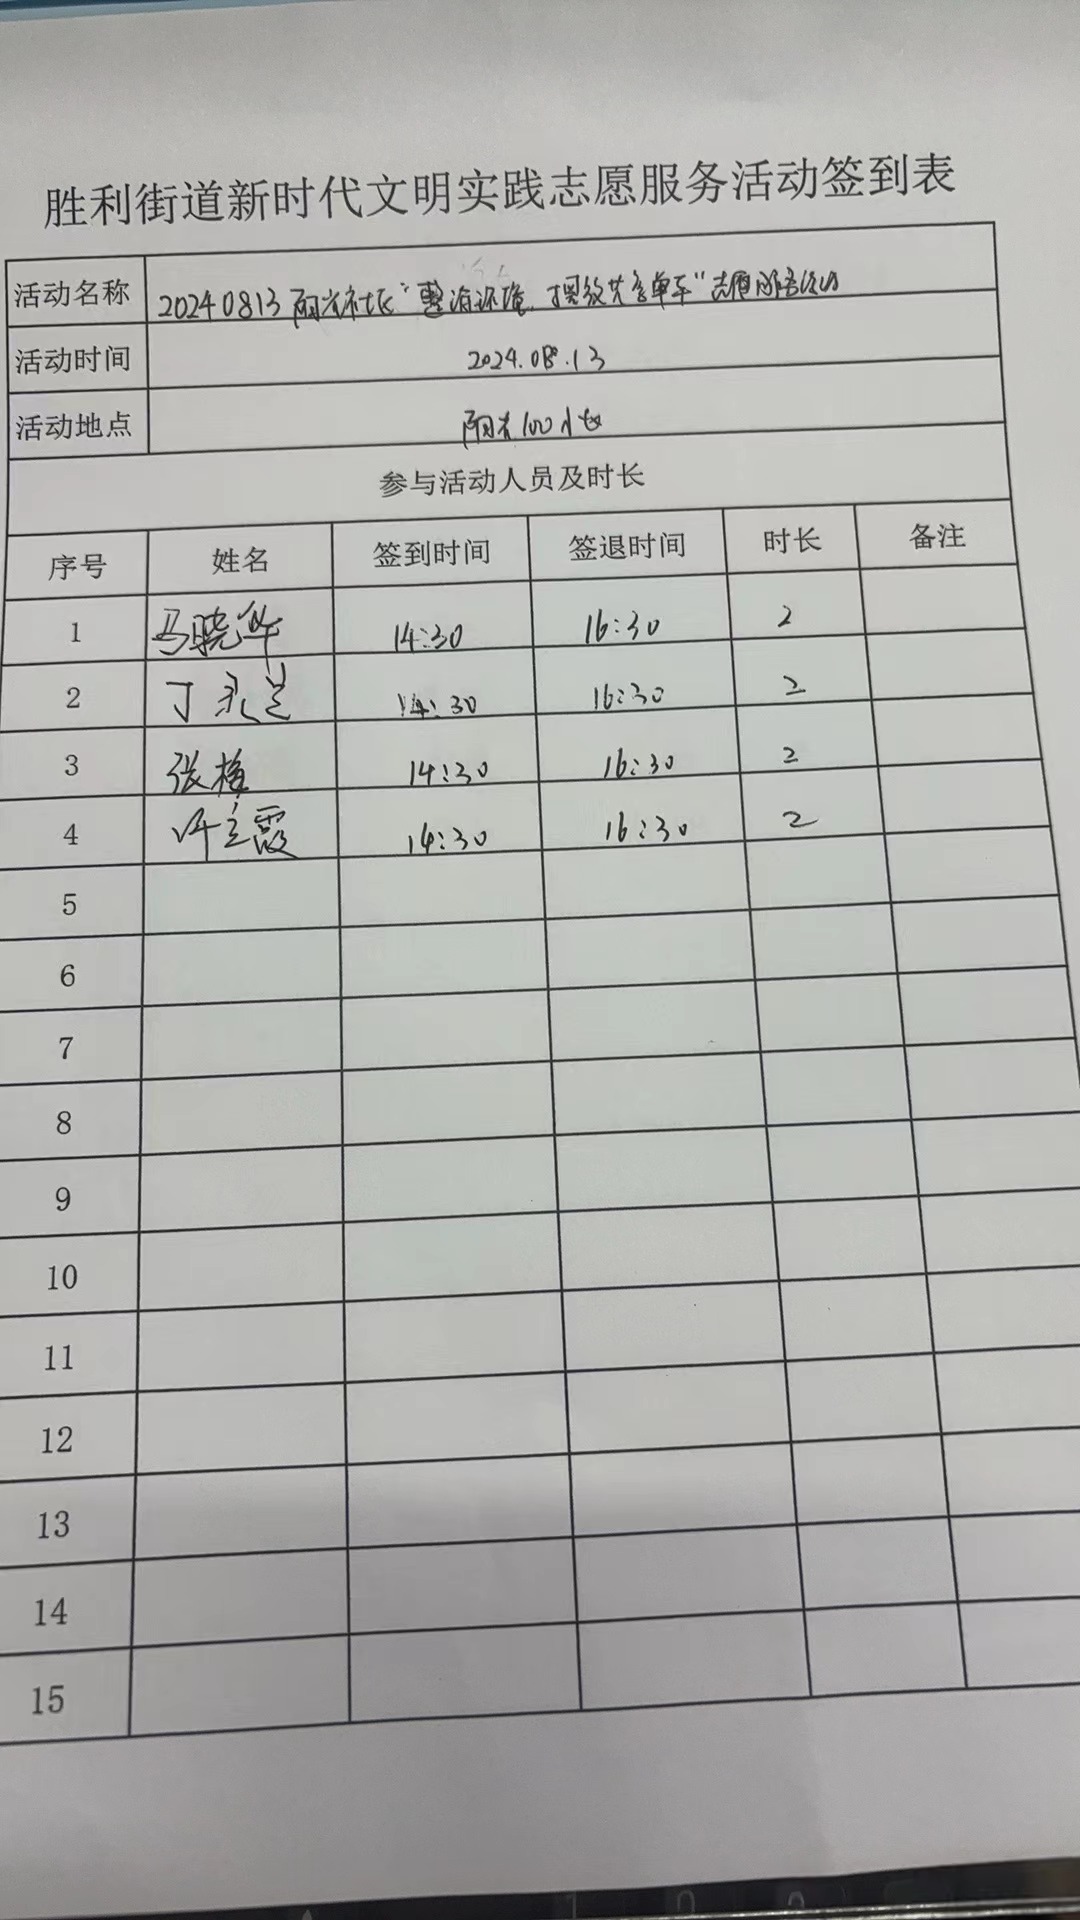 胜利街道新时代文明实践志愿服务活动签到表
活动名称 20240813 阳光社区"整治环境,摆放共享单车"志愿服务活动
活动时间 2024.08.13
活动地点 阳光100小区
参与活动人员及时长
序号 姓名 签到时间 签退时间 时长 备注
1 马晓华 14:30 16:30 2
2 丁 14:30 16:30 2
3 张梅 14:30 16:30 2
4 许立霞 14:30 16:30 2
5
6
7
8
9
10
11
12
13
14
15